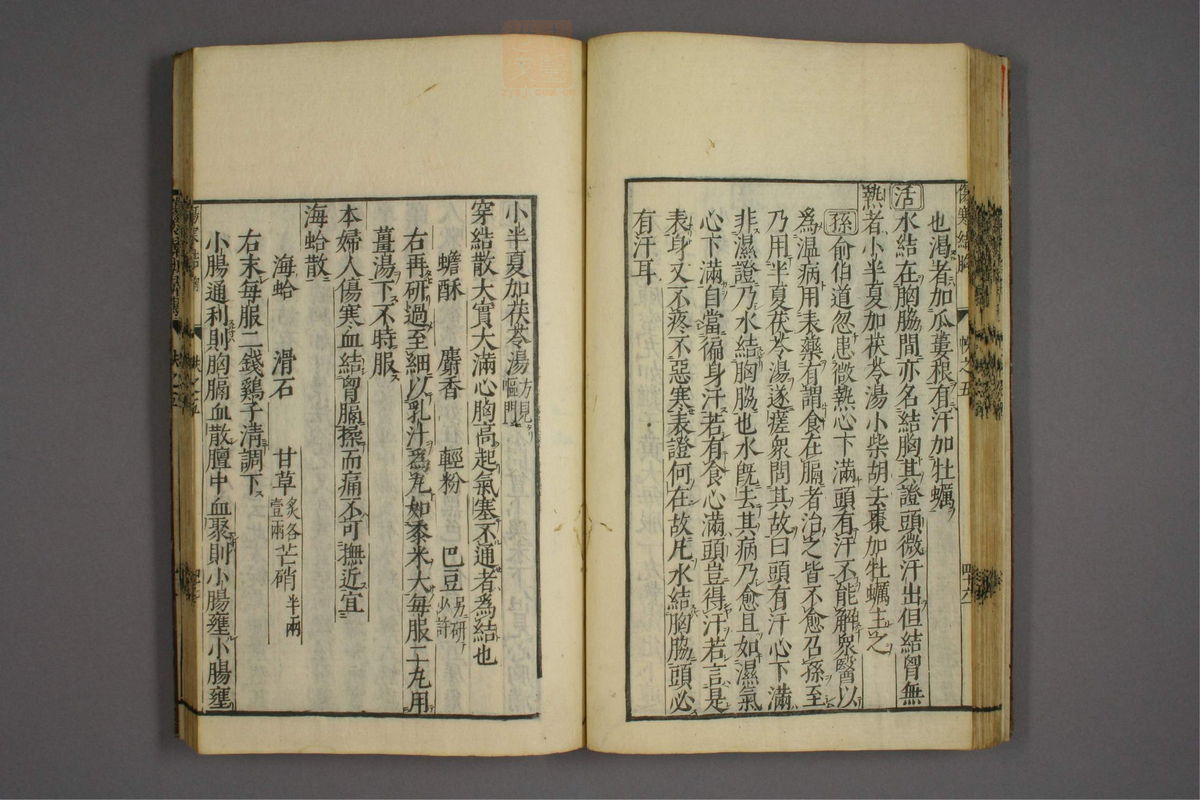 傷寒結胸
帙之五
四十六
也渴者加瓜蔞根有汗加牡蠣
活水結在胸脇間亦名結胸其證頭微汗出但結胷無
熱者小半夏加茯苓湯小柴胡去棗加牡蠣主之
孫俞伯道忽患微熱心下滿頭有汗不能解衆醫以
爲温病用表藥有謂食在膈者治之皆不愈召孫至
乃用半夏茯苓湯遂瘥衆問其故曰頭有汗心下滿
非濕證乃水結胸脇也水旣去其病乃愈且如濕氣
心下滿自當徧身汗若有食心滿頭豈得汗若言是
表身又不疼不惡寒表證何在故凡水結胸脇頭必
有汗耳
小半夏加茯苓湯方見嘔門
穿結散大實大滿心胸高起氣塞不通者爲結也
蟾酥 麝香 輕粉 巴豆另研少許
右再研過至細以乳汁爲丸如黍米大毎服二丸用
薑湯下不時服
本婦人傷寒血結胷膈揉而痛不可撫近宜
海蛤散
海蛤 滑石 甘草炙各壹兩 芒硝半兩
右末每服二錢鷄子清調下
小腸通利則胸膈血散膻中血聚則小腸壅小腸壅